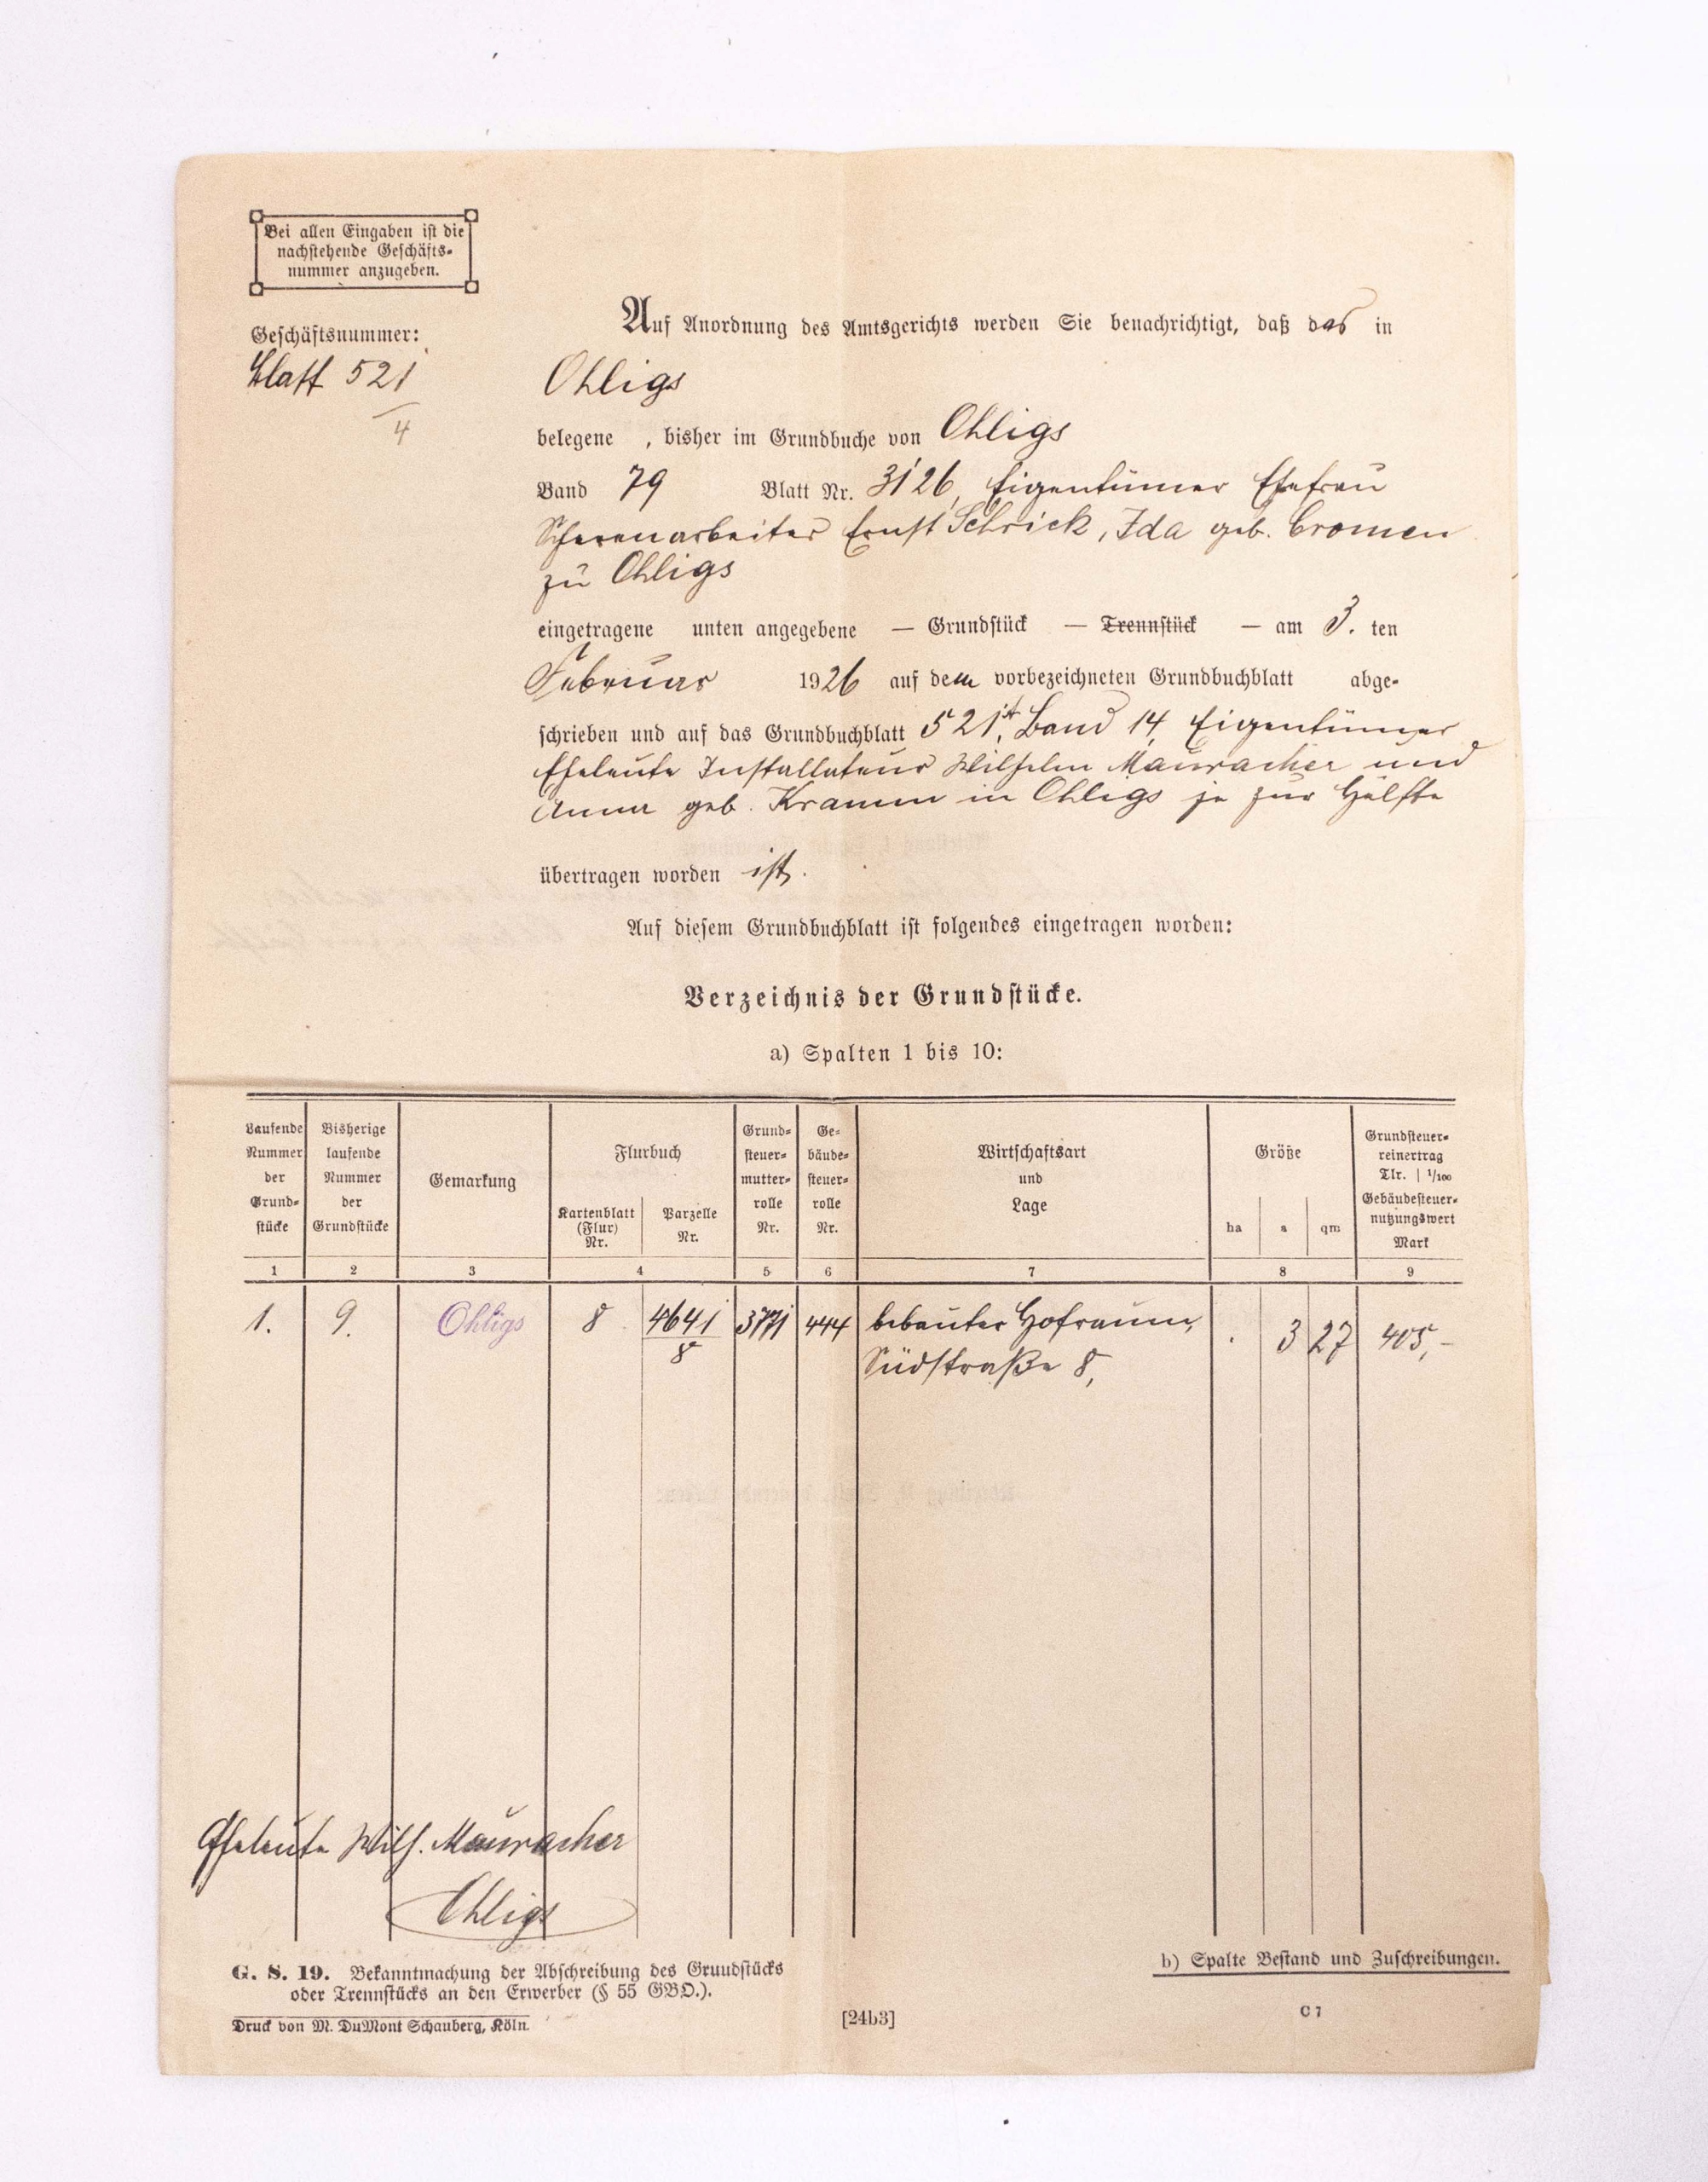 Bei allen Eingaben ist die
nachstehende Geschäfts-
nummer anzugeben.
Geschäftsnummer:
Blatt 521
4
Auf Anordnung des Amtsgerichts werden Sie benachrichtigt, daß das in
Ohligs
belegene , bisher im Grundbuche von Ohligs
Band 79 Blatt Nr. 3126, Eigentümer Ehefrau
Scherenarbeiter Ernst Schrick, Ida geb. Cromen
zu Ohligs
eingetragene unten angegebene — Grundstück — Trennstück — am 3. ten
Februar 1926 auf dem vorbezeichneten Grundbuchblatt abge-
schrieben und auf das Grundbuchblatt 521, Band 14, Eigentümer
Eheleute Installateur Wilhelm Mauracher und
Anna geb. Kramm in Ohligs je zur Hälfte
übertragen worden ist.
Auf diesem Grundbuchblatt ist folgendes eingetragen worden:
Verzeichnis der Grundstücke.
a) Spalten 1 bis 10:
Laufende Nummer der Grund-stücke
Bisherige laufende Nummer der Grundstücke
Gemarkung
Flurbuch
Kartenblatt (Flur) Nr.
Parzelle Nr.
Grund-steuer-mutter-rolle Nr.
Ge-bäude-steuer-rolle Nr.
Wirtschaftsart und Lage
Größe
ha a qm
Grundsteuer-reinertrag Tlr. | 1/100 Gebäudesteuer-nutzungswert Mark
1 2 3 4 5 6 7 8 9
1. 9. Ohligs 8 4641/8 3771 444 bebauter Hofraum, . 3 27 405,-
Südstraße 8,
Eheleute Wilh. Mauracher
Ohligs
G. S. 19. Bekanntmachung der Abschreibung des Grundstücks
oder Trennstücks an den Erwerber (§ 55 GBO.).
Druck von M. DuMont Schauberg, Köln.
[24b3]
b) Spalte Bestand und Zuschreibungen.
C 7